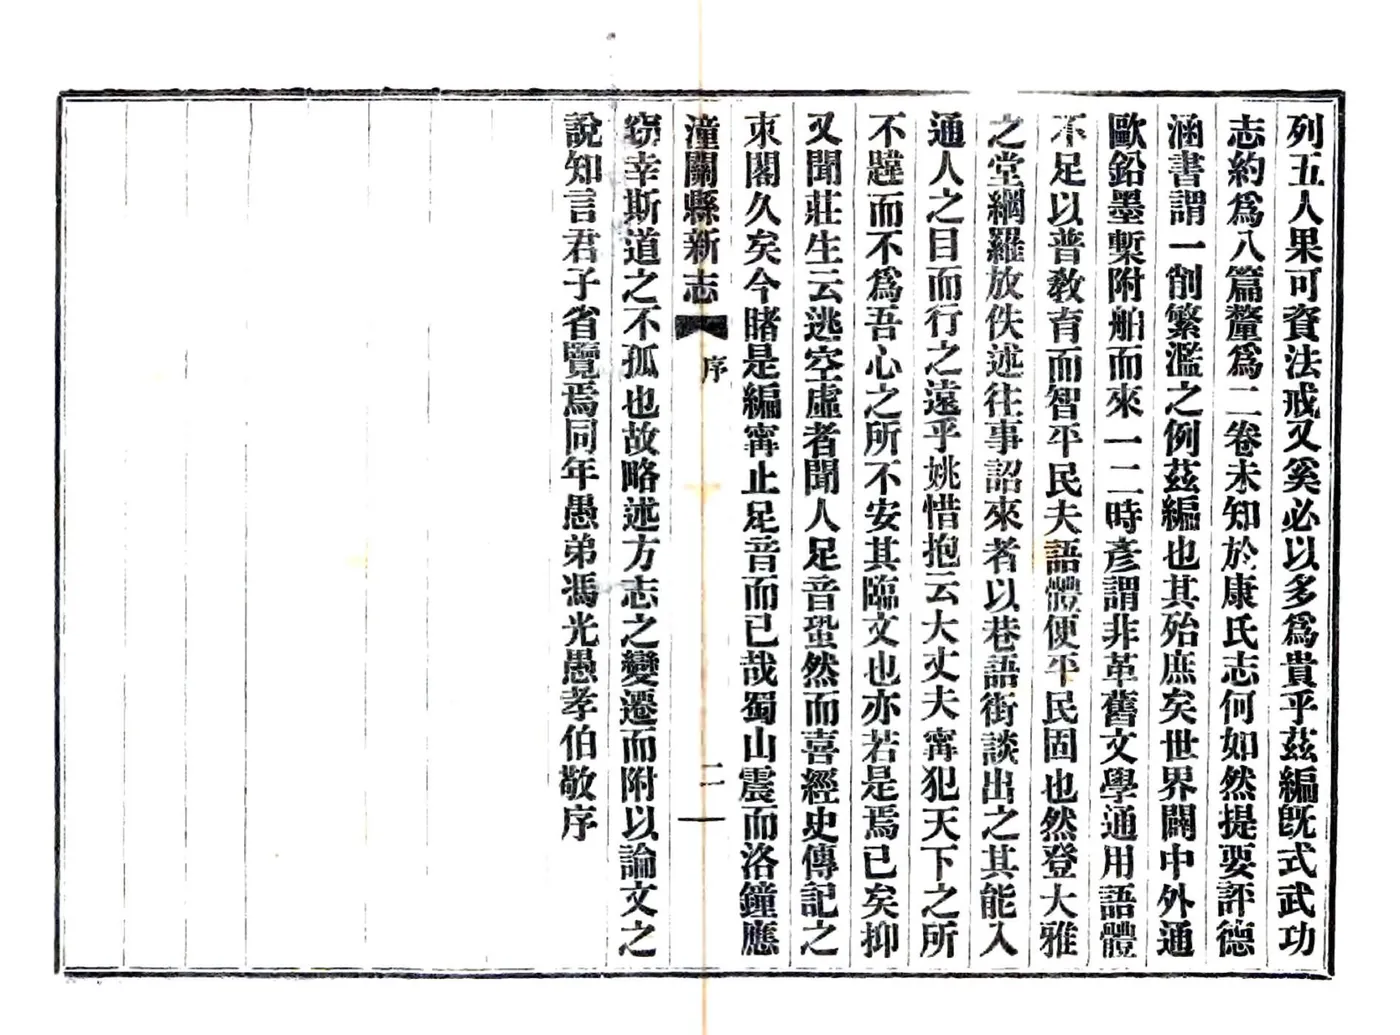 列五人果可資法戒又奚必以多爲貴乎茲編旣式武功
志約爲八篇釐爲二卷未知於康氏志何如然提要評德
涵書謂一削繁濫之例茲編也其殆庶矣世界闢中外通
歐鉛墨槧附舶而來一二時彥謂非革舊文學通用語體
不足以普敎育而智平民夫語體便平民固也然登大雅
之堂網羅放佚述往事詔來者以巷語街談出之其能入
通人之目而行之遠乎姚惜抱云大丈夫寗犯天下之所
不韙而不爲吾心之所不安其臨文也亦若是焉已矣抑
又聞莊生云逃空虛者聞人足音蛩然而喜經史傳記之
束閣久矣今睹是編寗止足音而已哉蜀山震而洛鐘應
潼關縣新志 序 二
竊幸斯道之不孤也故略述方志之變遷而附以論文之
說知言君子省覽焉同年愚弟馮光愚孝伯敬序